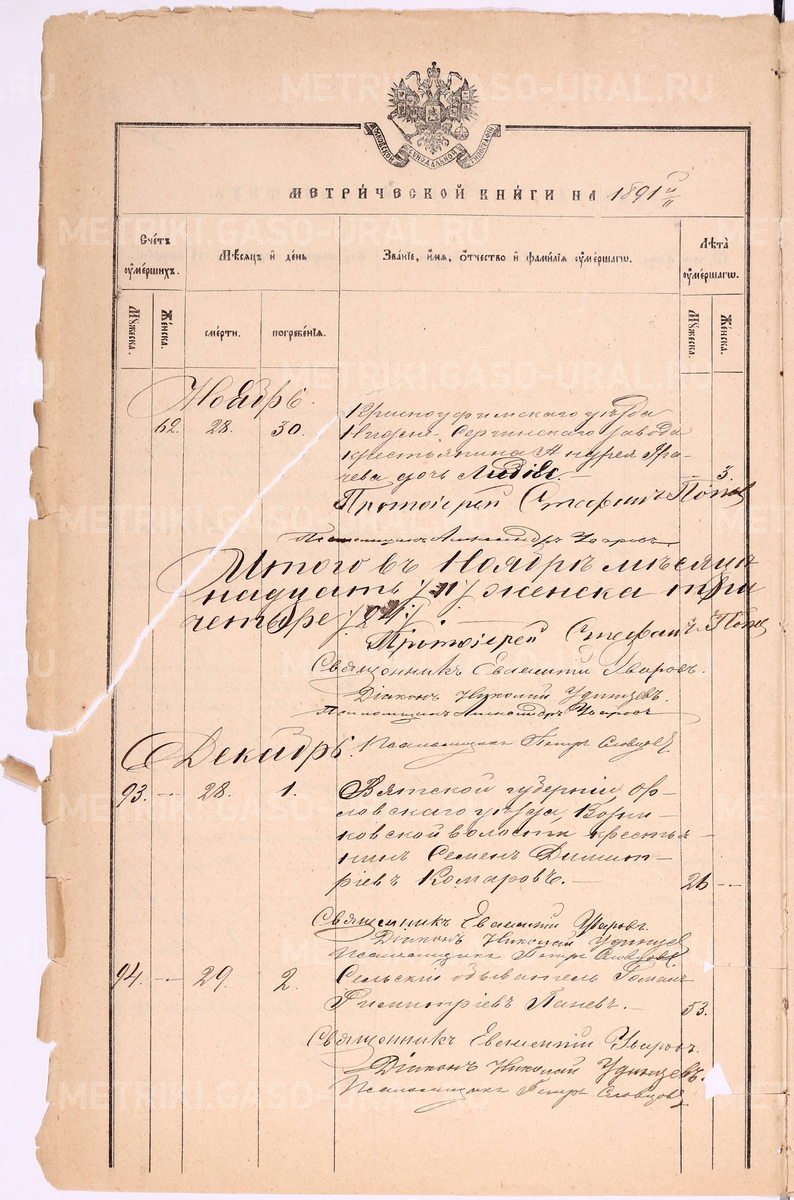 METRIKI.GASO-URAL.RU
МОСКОВСКОЙ СѴНОДАЛЬНОЙ ТИПОГРАФІИ
МЕТРИ́ЧЕСКОЙ КНИ́ГИ НА 1891 г.
Сче́тъ ᲂу҆ме́ршихъ.
Мѣ́сяцъ и҆ де́нь
Зва́нїе, и҆́мя, ѻ҆́тчество и҆ фами́лїя ᲂу҆ме́ршагѡ.
Лѣ́та ᲂу҆ме́ршагѡ.
Мꙋ́жеска.
Же́нска.
сме́рти.
погребе́нїя.
Мꙋ́жеска.
Же́нска.
Ноябрь.
Красноуфимскаго уѣзда
62. 28. 30. Нижне-Сергинскаго завода
крестьянина Андрея
дочь Лидія. — 3.
Протоіерей Стефанъ Попов
Псаломщикъ Александръ Уваровъ
Итого въ Ноябрѣ мѣсяцѣ
надцать /11/ женска три
четыре
Протоіерей Стефанъ Попов
Священникъ Евгеній Уваровъ.
Діаконъ Николай Удинцевъ.
Псаломщикъ Александръ Уваровъ
Декабрь. Псаломщикъ Петръ Словцовъ.
93. — 28. 1. Вятской губерніи Ор-
ловскаго уѣзда,
ковской волости крестья-
нинъ Семенъ Димит-
ріевъ Комаровъ. — 26 —
Священникъ Евгеній Уваровъ.
Діаконъ Николай Удинцев
Псаломщикъ Петръ Словцовъ
94. — 29. 2. Сельскій обыватель Романъ
Димитріевъ Паневъ. — 53.
Священникъ Евгеній Уваровъ.
Діаконъ Николай Удинцевъ.
Псаломщикъ Петръ Словцовъ